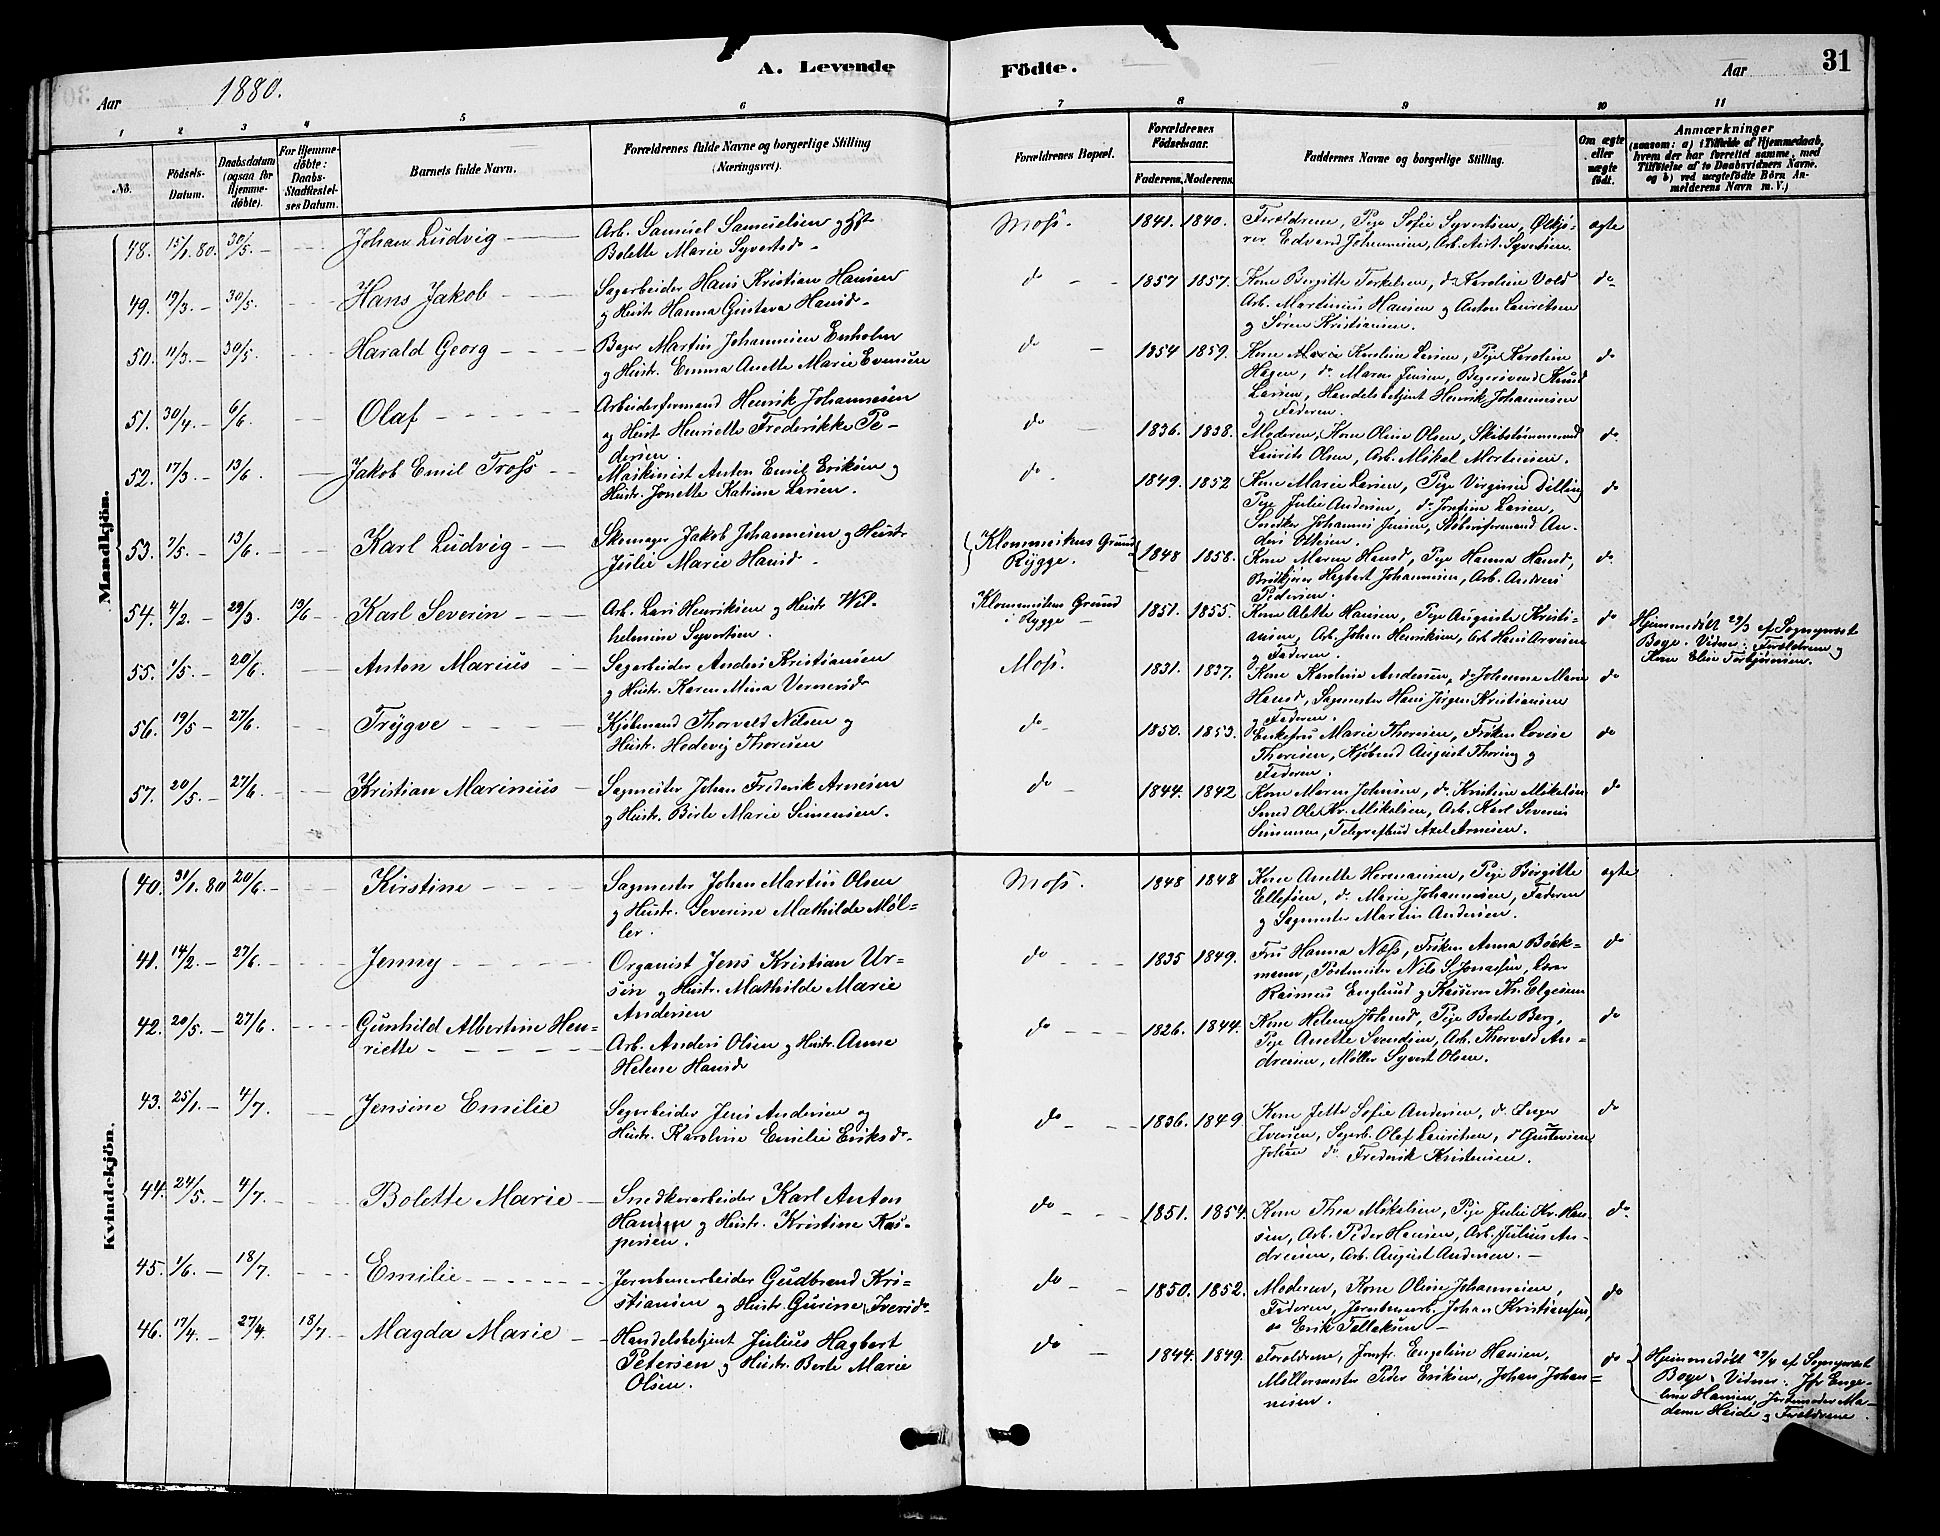 A. Levende Födte.
31
Aar 1880.
Aar
1 2 3 4 5 6 7 8 9 10 11
No.
Födsels-Datum.
Daabsdatum (ogsaa for Hjemmedöbte).
For Hjemmedöbte: Daabs-Stadfæstelses Datum.
Barnets fulde Navn.
Forældrenes fulde Navne og borgerlige Stilling (Næringsvei).
Forældrenes Bopæl.
Forældrenes Födselsaar.
Faderens. Moderens.
Faddernes Navne og borgerlige Stilling.
Om ægte eller uægte födt.
Anmærkninger
(saasom: a) i Tilfælde af Hjemmedaab, hvem der har forrettet samme, med Tilföielse af to Daabsvidners Navne, og b) ved uægtefödte Börn Anmelderens Navn m. V.)
Mandkjön.
48. 15/1 80. 30/5 Johan Ludvig
Arb. Samuel Samuelsen og Hst.
Bolette Marie Syvertsd.
Moss. 1841. 1840.
Forældrene, Pige Sofie Syvertsen, Ølkjø-
rer Edvard Johannesen, Arb. Syvertsen
ægte
49. 19/3 30/5 Hans Jakob
Sagarbeider Hans Kristian Hansen
og Hustr. Hanna Gustava Hansd.
do 1857 1857.
Kone Birgitte Torkelsen, do Karoline Vold
Arb. Martinius Hansen og Anton Lauritsen
og Søren Kristiansen.
do
50. 11/3 30/5 Harald Georg
Bager Martin Johannesen Enholm
og Hustr. Emma Anette Marie Evensen
do 1854 1859.
Kone Maria Karoline Larsen, Pige Karoline
Hagen, do Maren Jensen, Bagersvend Knud
Larsen, Handelsbetjent Henrik Johannesen
og Faderen.
do
51. 30/4 6/6 Olaf
Arbeiderformand Henrik Johannesen
og Hust. Henriette Frederikke Pe-
dersen.
do 1836. 1838.
Moderen, Kone Oline Olsen, Skibstømmermand
Laurits Olsen, Arb. Mikal Mortensen.
do
52. 17/3 13/6 Jakob Emil Tross
Maskinist Anton Emil Eriksen og
Hustr. Jonette Katrine Larsen.
do 1849. 1852
Kone Marie Larsen, Pige Virginie Dilling
Pige Julie Andersen, do Josefine Larsen,
Snedker Johannes Jensen, Støberiformand An-
ders Ottesen.
do
53. 7/5 13/6 Karl Ludvig
Skomager Jakob Johannesen og Hustr.
Julie Marie Hansd.
Klommestens Grund
Rygge.
1848 1858.
Kone Maren Hansd, Pige Hanna Hansd,
Brødkjører Hagbart Johannesen, Arb. Anders
Pedersen.
do
54. 4/2 29/3 13/6 Karl Severin
Arb. Lars Henriksen og Hustr. Wil-
helmine Syvertsen.
Klommestens Grund
i Rygge
1851. 1855.
Kone Alette Hansen, Pige Auguste Kristi-
ansen, Arb. Johan Henriksen, Arb. Hans Arvesen
og Faderen.
do
Hjemmedøbt 29/3 af Sognepræst
Boye. Vidner: Forældrene og
Kone Elise Torbjørnsen.
55. 1/5 20/6 Anton Marius
Sagarbeider Anders Kristiansen
og Hustr. Karen Mina Vernersd.
Moss. 1831. 1837.
Kone Karoline Andersen, do Johanne Marie
Hansd, Sagmester Hans Jørgen Kristiansen
og Faderen.
do
56. 19/5 27/6 Trygve
Kjøbmand Thorvald Nilsen og
Hustr. Hedevig Thoresen
do 1850. 1853.
Enkefru Marie Thoresen, Frøken Lovise
Thoresen, Kjøbmd August Thoring og
Faderen.
do
57. 20/5 27/6 Kristian Marinius
Sagmester Johan Frederik Arnesen
og Hustr. Birte Marie Simensen.
do 1844. 1842
Kone Maren Johnsen, do Kristine Mikalsen
Smed Ole Kr. Mikalsen, Arb. Karl Severin
Simensen, Telegrafbud Axel Arnesen.
do
Kvindekjön.
40. 31/1 80 20/6 Kirstine
Sagmester Johan Martin Olsen
og Hustr. Severine Mathilde Møl-
ler.
Moss. 1848 1848
Kone Anette Hermansen, Pige Birgitte
Ellefsen, do Marie Johannesen, Faderen
og Sagmester Martin Andersen.
ægte
41. 14/2 27/6 Jenny
Organist Jens Kristian Ur-
sin og Hustr. Mathilde Marie
Andersen
do 1835 1849.
Fru Hanna Næss, Frøken Anna Bøck-
mann, Postmester Nils S. Jonassen, Lærer
Rasmus Englund og Kasserer Kr. Elgesem
do
42. 20/5 27/6 Gunhild Albertine Hen-
riette
Arb. Anders Olsen og Hustr. Anne
Helene Hansd
do 1826. 1844.
Kone Helene Johnsd, Pige Berte Berg,
Pige Anette Svendsen, Arb. Thorvald An-
dreasen, Møller Syvert Olsen.
do
43. 25/1 4/7 Jensine Emilie
Sagarbeider Jens Andersen og
Hustr. Karoline Emilie Eriksd.
do 1836. 1849
Kone Jette Sofie Andersen, do Inger
Iversen, Sagarb. Olaf Lauritsen, do Gustavsen
Johan do Frederik Kristensen.
do
44. 24/5 4/7 Bolette Marie
Snedkerarbeider Karl Anton
Hansen og Hustr. Kristine Kas-
persen.
do 1851. 1854.
Kone Thea Mikalsen, Pige Julie Kr. Han-
sen, Arb. Peder Hansen, Arb. Julius An-
dreasen, Arb. August Andersen.
do
45. 1/6 18/7 Emilie
Jernbanearbeider Gudbrand Kri-
stiansen og Hustr. Gurine Iversd.
do 1850. 1852.
Moderen, Kone Oline Johannesen,
Faderen, Jernbanearb. Johan Kristiansen,
do Erik Tollaksen
do
46. 17/4 27/4 18/7 Magda Marie
Handelsbetjent Julius Hagbart
Petersen og Hustr. Berte Marie
Olsen.
do 1844. 1849.
Forældrene, Jomfr. Engeline Hansen,
Møllermester Peder Eriksen, Johan Johan-
nesen.
do
Hjemmedøbt 27/4 af Sognepræst
Boye. Vidner: Jfr Enge-
line Hansen, Jordemoder Ma-
dame Heide og Forældrene.